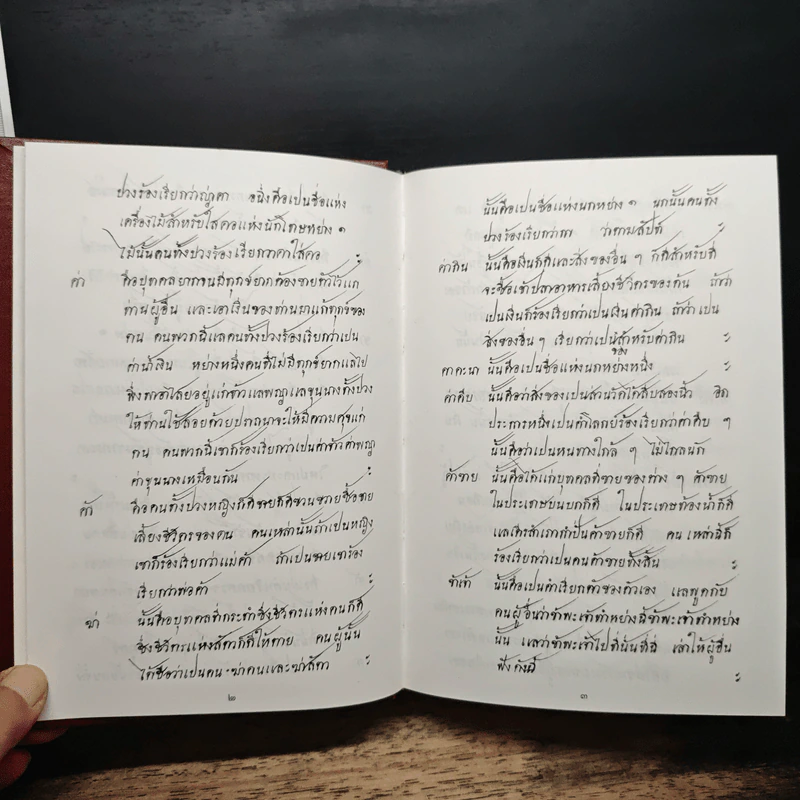 ปวงร้องเรียกว่าญ่าคา อนึ่งคือเปนชื่อแห่ง
เครื่องไม้สำหรับใส่คอแห่งนักโทษหย่าง ๑
ไม้นั้นคนทั้งปวงร้องเรียกว่าคาใส่คอ
ค่า คือบุทคลยากจนมีทุกข์ยากต้องขายตัวไว้แก่
ท่านผู้อื่น และเอาเงินของท่านมาแก้ทุกข์ของ
ตน คนพวกนี้แลคนทั้งปวงร้องเรียกว่าเปน
ค่าน้ำเงิน หย่างหนึ่งคนที่ไม่มีทุกข์ยากแลไป
พึ่งพาอาไศรยอยู่แก่เจ้าแลพญาแลขุนนางทั้งปวง
ให้ท่านใช้สอยด้วยปราถนาจะให้มีความศุขแก่
ตน คนพวกนี้เขาก็ร้องเรียกว่าเปนค่าเจ้าค่าพญา
ค่าขุนนางเหมือนกัน
ค้า คือคนทั้งปวงหญิงก็ดีชายก็ดีชวนขวายซื้อขาย
เลี้ยงชีวิตรของตน คนเหล่านั้นถ้าเปนหญิง
เขาก็ร้องเรียกว่าแม่ค้า ถ้าเปนชายเขาร้อง
เรียกว่าพ่อค้า
ฆ่า นั้นคือบุทคลที่กระทำซึ่งชีวิตรแห่งคนก็ดี
ซึ่งชีวิตรแห่งสัตวก็ดีให้ตาย คนผู้นั้น
ได้ชื่อว่าเปนคนฆ่าคนและฆ่าสัตว
๒
นั้นคือเปนชื่อแห่งนกหย่าง ๑ นกนั้นคนทั้ง
ปวงร้องเรียกว่ากา ว่าตามสัปท์
ค่ากิน นั้นคือเงินก็ดีและสิ่งของอื่น ๆ ก็ดีสำหรับที่
จะซื้อเข้าปลาอาหารเลี้ยงชีวิตรของตน ถ้าว่า
เปนเงินก็ร้องเรียกว่าเปนเงินค่ากิน ถ้าว่าเปน
สิ่งของอื่น ๆ เรียกว่าเปนของสำหรับค่ากิน
คาคะนา นั้นคือเปนชื่อแห่งนกหย่างหนึ่ง
ค่าคืบ นั้นคือว่าสิ่งของเปนส่วนวัดได้สิบสองนิ้ว อีก
ประการหนึ่งเปนคำโลกย์ร้องเรียกว่าค่าคืบ ๆ
นั้นคือว่าเปนหนทางใกล้ ๆ ไม่ไกลนัก
ค้าขาย นั้นคือได้แก่บุทคลที่ขายของต่าง ๆ ค้าขาย
ในประเทษบนบกก็ดี ในประเทษท้องน้ำก็ดี
แลเภตราสำเภากำปั่นค้าขายก็ดี คนเหล่านี้ก็
ร้องเรียกว่าเปนคนค้าขายทั้งสิ้น
ข้าเจ้า นั้นคือเปนคำเรียกตัวของตัวเอง แลพูดกับ
คนผู้อื่นว่าข้าพะเจ้าทำหย่างนี้ข้าพะเจ้าทำหย่าง
นั้น แลว่าข้าพะเจ้าไปที่นั้นที่นี่ เล่าให้ผู้อื่น
ฟังดังนี้
๓